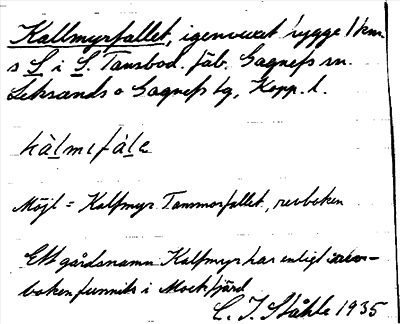 Kallmyrfallet, igenvuxet hygge 1 km
s S i S. Tansbod. fäb. Gagnefs sn.
Leksands o Gagnefs tg, Kopp. l.
kàlmɩfàlɛ
Möjl = Kalfmyr Tansmorfallet, revboken
Ett gårdsnamn Kalfmyr har enligt
boken funnits i Mockfjärd
C. I. Ståhle 1935